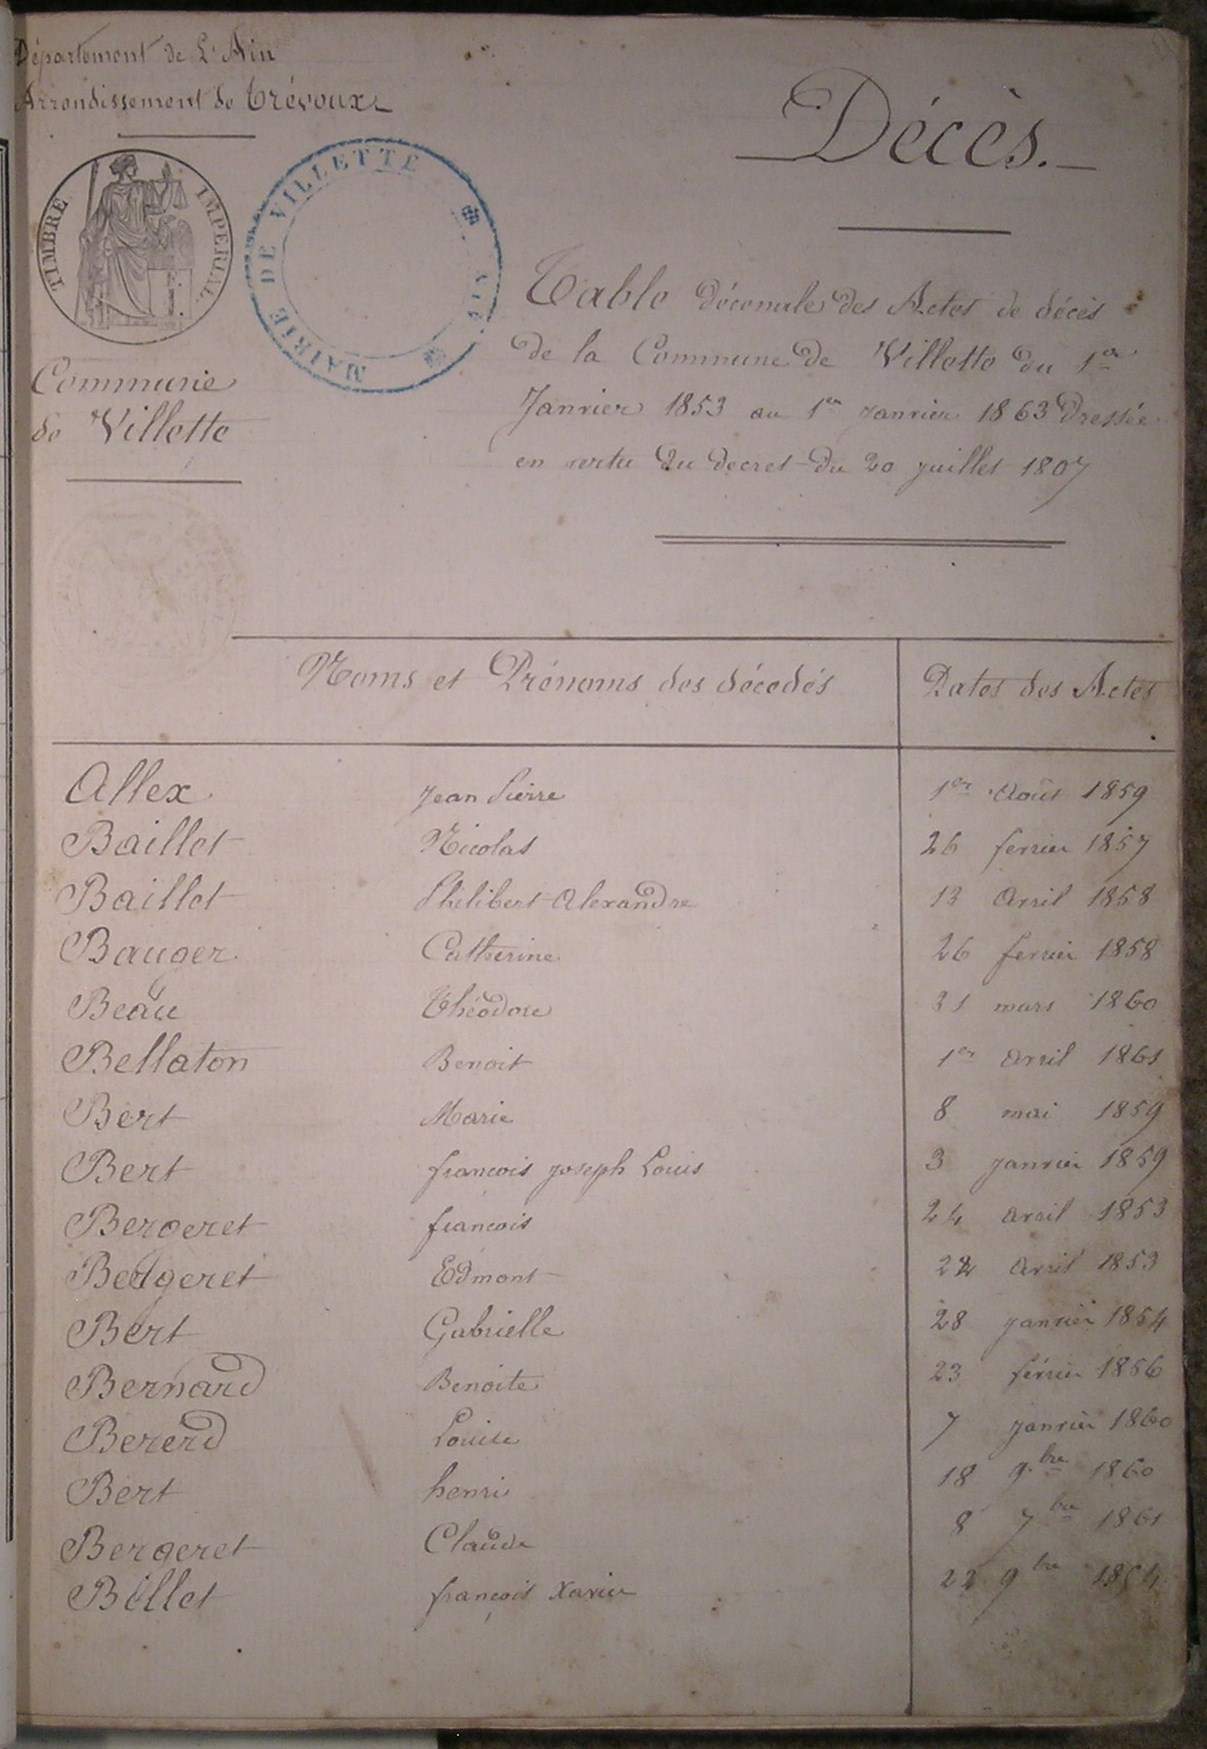 Département de L'Ain
Arrondissement de Trévoux
Décès.
TIMBRE IMPERIAL
MAIRIE DE VILLETTE AIN
Commune
de Villette
Table décennale des Actes de décès
de la Commune de Villette du 1er
Janvier 1853 au 1er Janvier 1863 Dressée
en vertu du decret du 20 juillet 1807
Noms et Prénoms des décédés Dates des Actes
Allex Jean Pierre 1er Août 1859
Baillet Nicolas 26 fevrier 1857
Baillet Philibert Alexandre 13 Avril 1858
Bauger Catherine 26 fevrier 1858
Beau Théodore 31 mars 1860
Bellaton Benoit 1er Avril 1861
Bert Marie 8 mai 1859
Bert francois joseph Louis 3 janvier 1859
Bergeret francois 24 avril 1853
Bergeret Edmont 22 Avril 1853
Bert Gabrielle 28 janvier 1854
Bernard Benoite 23 février 1856
Bererd Louise 7 janvier 1860
Bert henri 18 9.bre 1860
Bergeret Claude 8 7bre 1861
Billet françois Xavier 22 9bre 1854